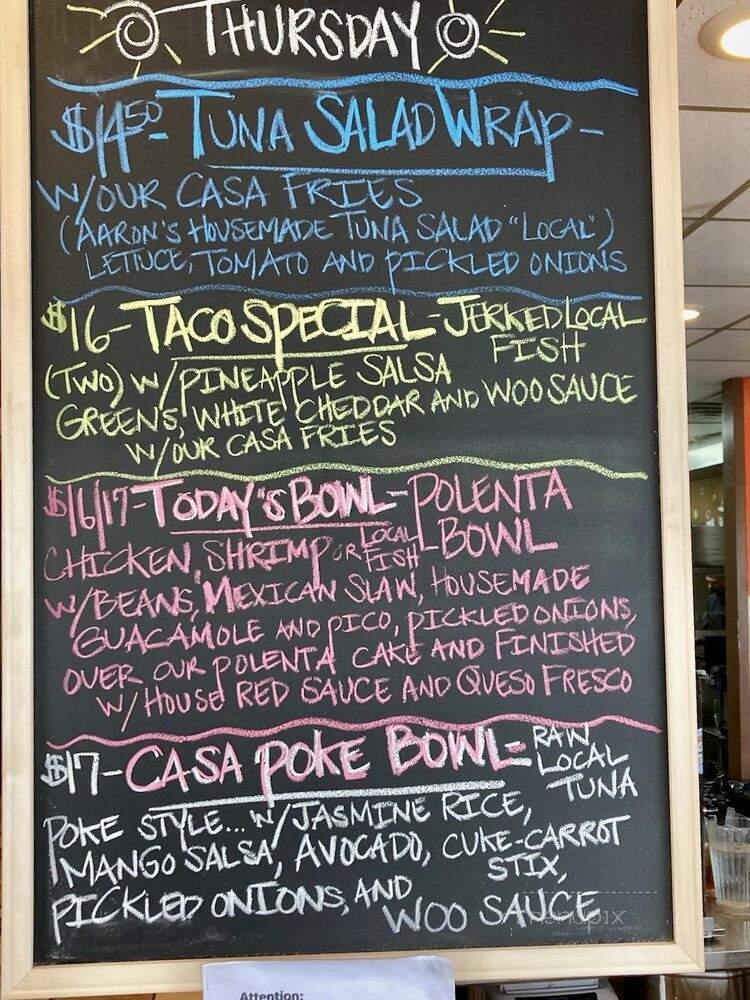 THURSDAY
$14.50 - TUNA SALAD WRAP -
W/OUR CASA FRIES
(AARON'S HOUSEMADE TUNA SALAD "LOCAL")
LETTUCE, TOMATO AND PICKLED ONIONS
$16 - TACO SPECIAL - JERKED LOCAL
FISH
(TWO) W/PINEAPPLE SALSA
GREENS, WHITE CHEDDAR AND WOO SAUCE
W/OUR CASA FRIES
$16/17 - TODAY'S BOWL - POLENTA
BOWL
CHICKEN, SHRIMP OR LOCAL FISH
W/BEANS, MEXICAN SLAW, HOUSEMADE
GUACAMOLE AND PICO, PICKLED ONIONS,
OVER OUR POLENTA CAKE AND FINISHED
W/HOUSE RED SAUCE AND QUESO FRESCO
$17 - CASA POKE BOWL = RAW
LOCAL
TUNA
POKE STYLE... W/JASMINE RICE,
MANGO SALSA, AVOCADO, CUKE-CARROT
STIX,
PICKLED ONIONS, AND
WOO SAUCE
menupix
Attention: